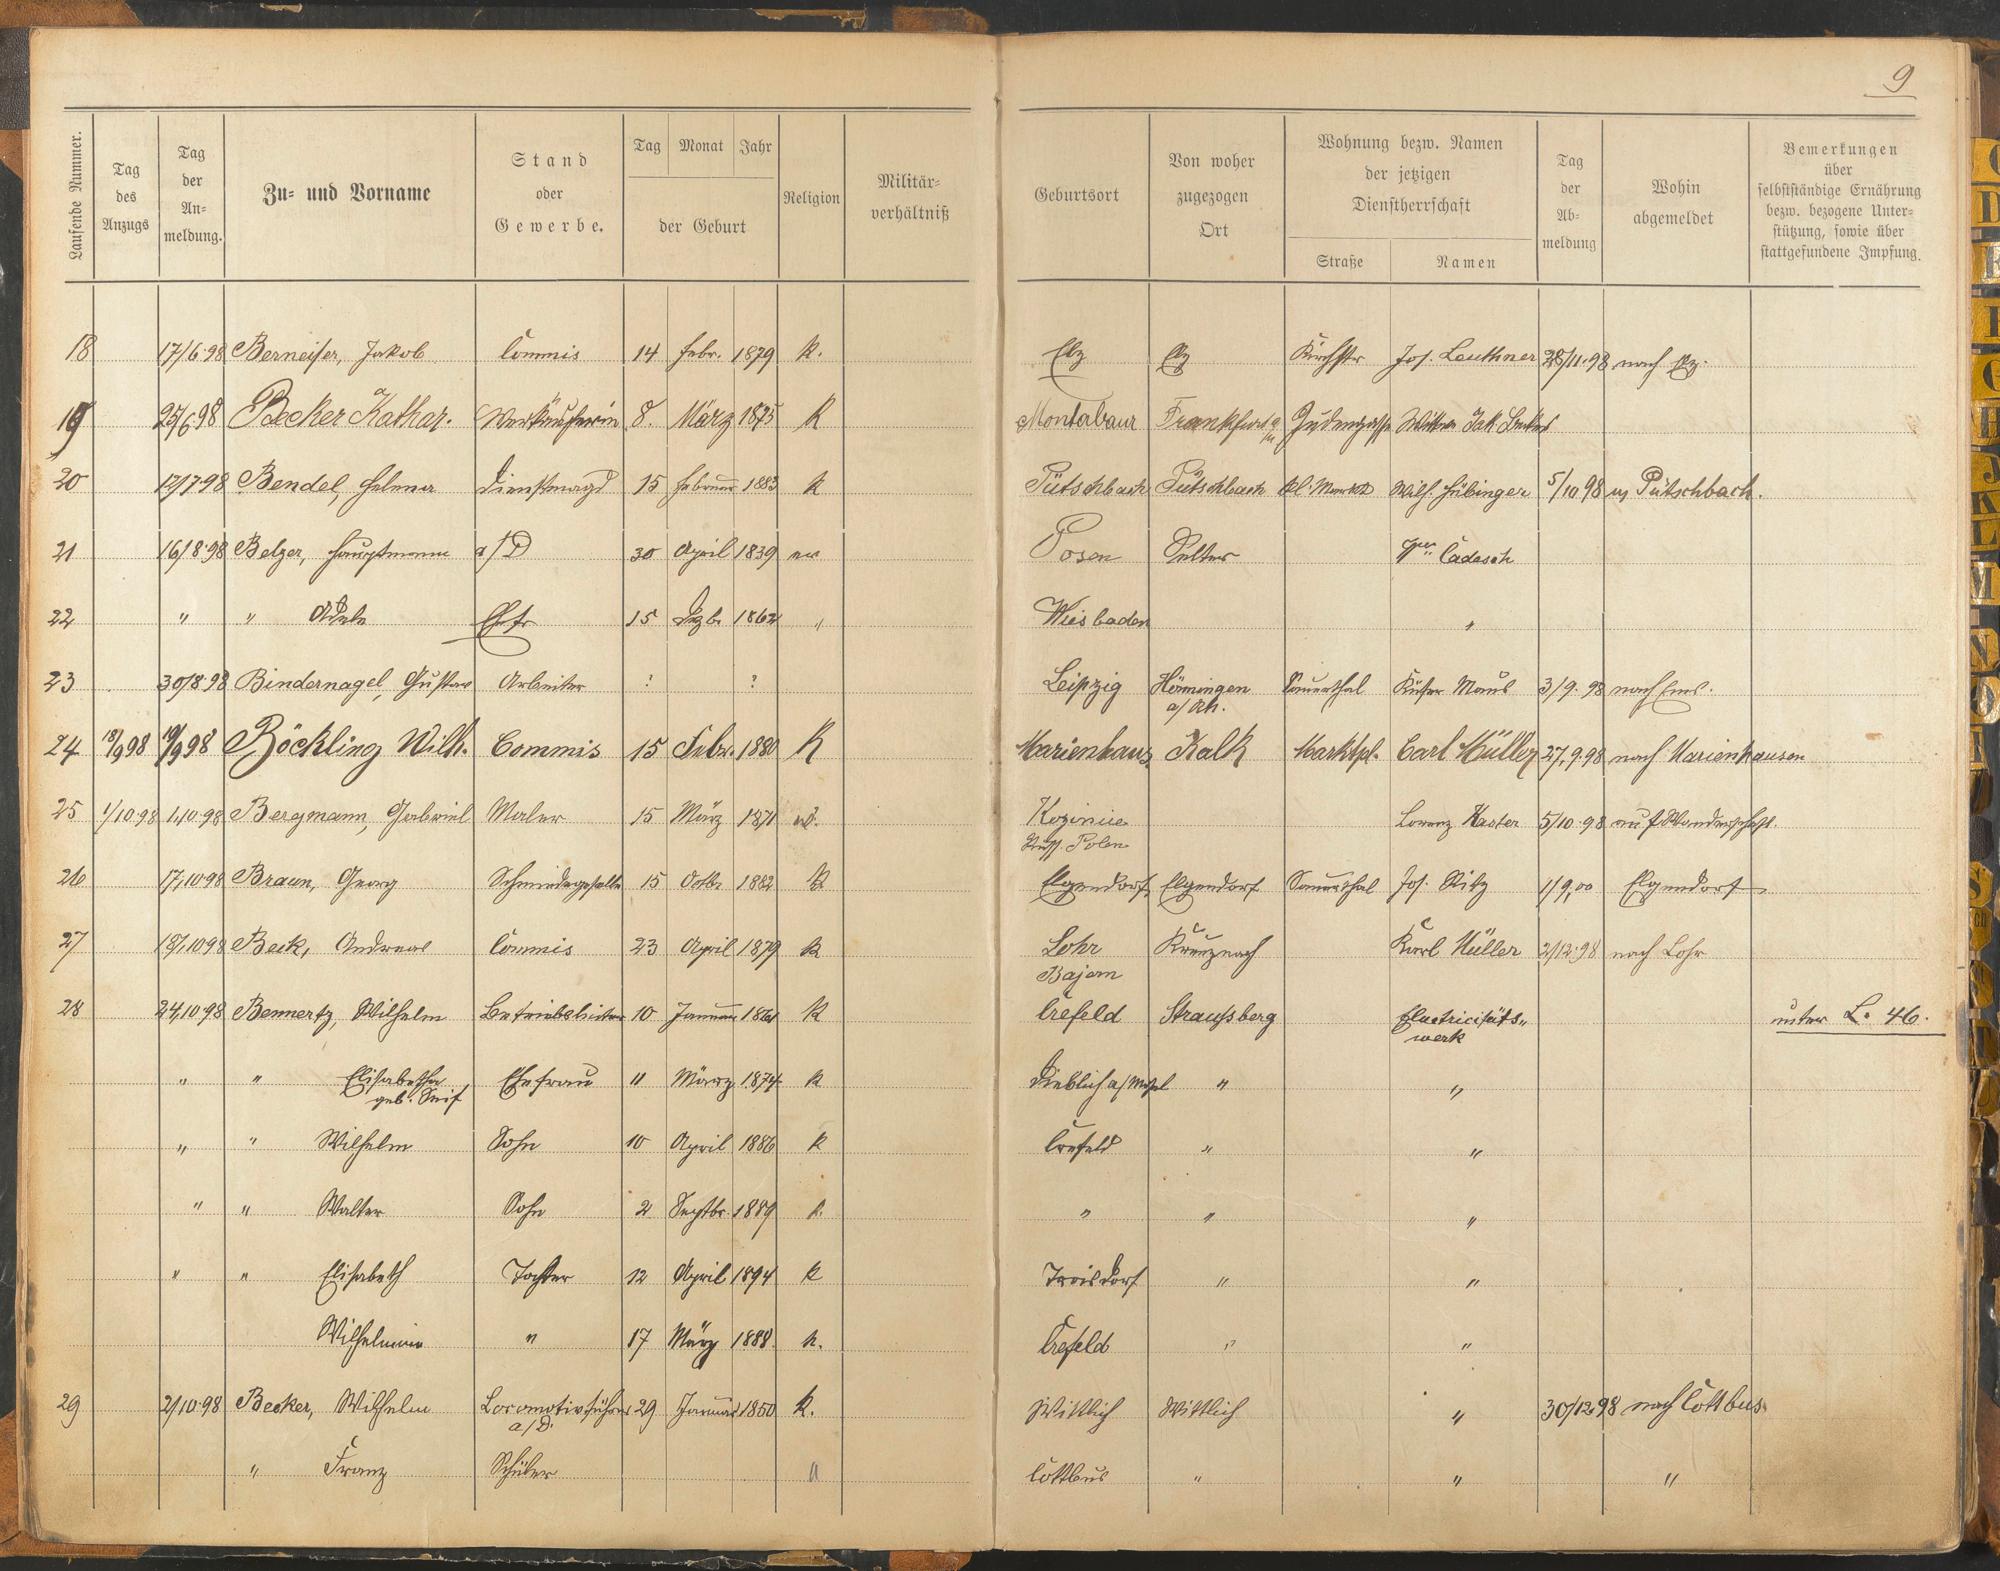 9
Laufende Nummer.
Tag des Anzugs
Tag der An- meldung.
Zu- und Vorname
Stand oder Gewerbe.
Tag Monat Jahr
der Geburt
Religion
Militär- verhältniß
Geburtsort
Von woher zugezogen Ort
Wohnung bezw. Namen der jetzigen Dienstherrschaft
Straße Namen
Tag der Ab- meldung
Wohin abgemeldet
Bemerkungen über selbstständige Ernährung bezw. bezogene Unter- stützung, sowie über stattgefundene Impfung.
18 17/6.98 Berneiser, Jakob Commis 14 Febr. 1879 k. Elz Elz Kirchstr Jos. Leuthner 28/11.98 nach Elz.
19 25/6 98 Becker Kathar. Verkäuferin 8. März 1875 K Montabaur Frankfurt a/M Judengasse Wittwe Jak. Becker
20 12/7.98 Bendel, Helena Dienstmagd 15 Februar 1883 k Pütschbach Pütschbach kl. Markt Wilh. Hübinger 5/10 98 n Pütschbach.
21 16/8.98 Belzer, Hauptmann a/D 30 April 1839 ev Posen Selters Cadesch
22 " " Adele Ehefr 15 Dezbr 1862 " Wiesbaden "
23 30/8.98 Bindernagel, Gustav Arbeiter ? ? Leipzig Hönningen Sauerthal Küfer Maus 3/9.98 nach Ems.
a/Rh.
24 18/9 98 19/9 98 Böckling Wilh. Commis 15 Febr. 1880 K Marienhaus. Kalk Marktpl. Carl Müller 27.9.98 nach Marienhausen
25 1/10.98 1.10.98 Bergmann, Gabriel Maler 15 März 1871 Lorenz Kaster 5/10.98 auf Wanderschaft.
Russ. Polen
26 17.10.98 Braun, Georg Schmiedegeselle 15 Octbr 1882 k Elgendorf Elgendorf Sauerthal Jos. Ritz 1/9.00 Elgendorf
27 18.10.98 Beck, Andreas Commis 23 April 1879 k Lohr Kreuznach Karl Müller 2/12.98 nach Lohr
Bajern
28 24.10.98 Bennertz, Wilhelm Betriebsleiter 10 Januar 1861 k Crefeld Straussberg Electricitäts- unter L. 46.
werk
" " Elisabetha Ehefrau 11 März 1874 k Dieblich a/Mosel " "
geb.
" " Wilhelm Sohn 10 April 1886 k Crefeld " "
" " Walter Sohn 2 Septbr. 1889 k. " " "
" " Elisabeth Tochter 12 April 1894 k Troisdorf " "
Wilhelmine " 17 März 1888 k. Crefeld " "
29 2/10.98 Becker, Wilhelm Locomotivführer 29 Januar 1850 k. Wittlich Wittlich " 30/12.98 nach Cottbus.
a/D.
" Franz Schüler " Cottbus " " "